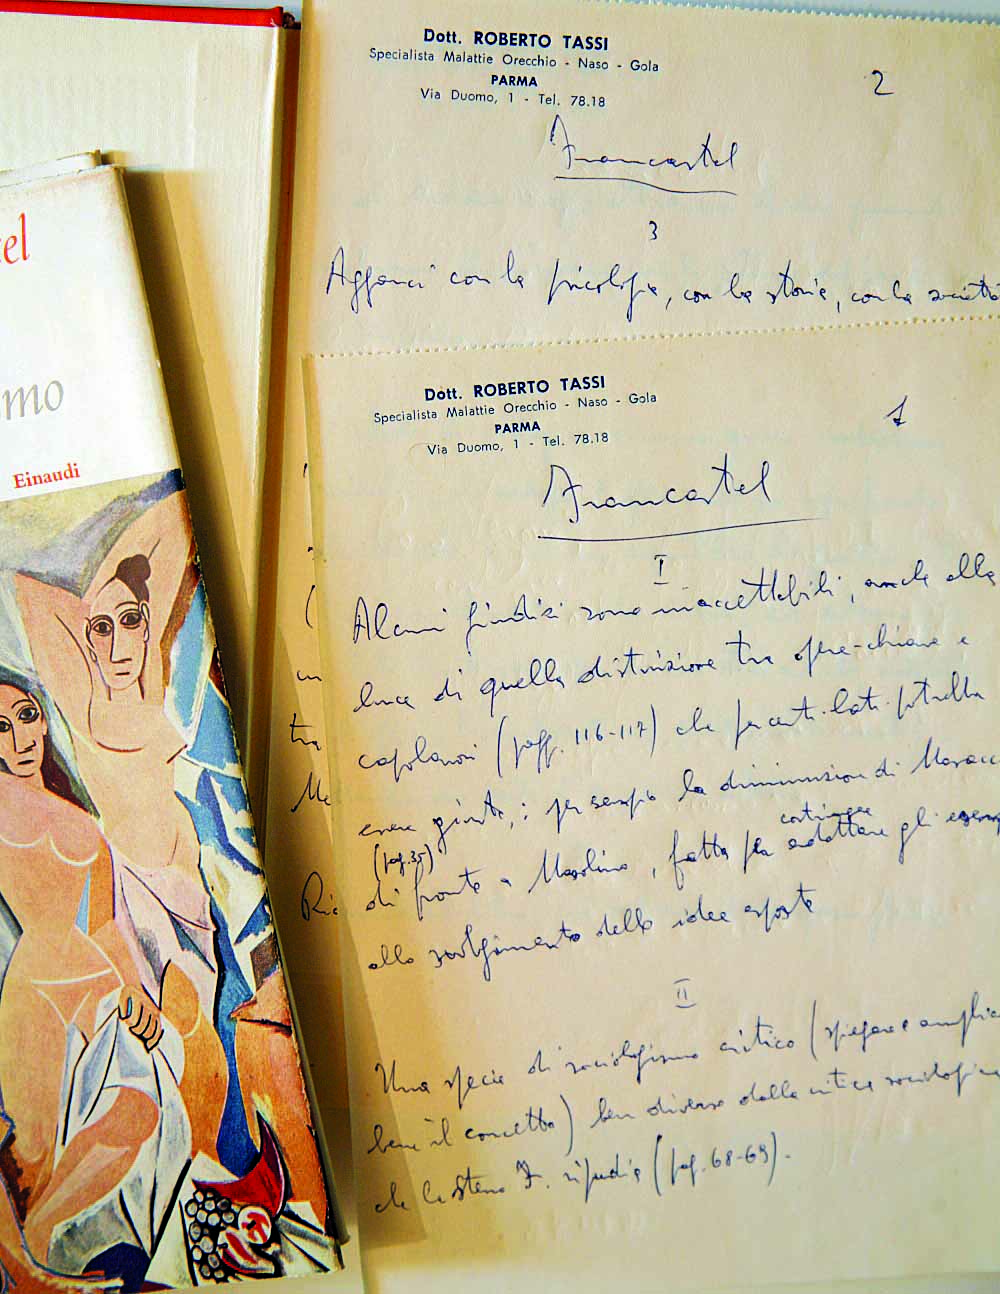 el
mo
Einaudi
Dott. ROBERTO TASSI
Specialista Malattie Orecchio - Naso - Gola
PARMA
Via Duomo, 1 - Tel. 78.18
2
Francastel
3
Agganci con la psicologia, con la storia, con la società
Dott. ROBERTO TASSI
Specialista Malattie Orecchio - Naso - Gola
PARMA
Via Duomo, 1 - Tel. 78.18
1
Francastel
I
Alcuni giudizi sono inaccettabili, anche alla
luce di quella distinzione tra opere-chiave e
capolavori (pagg. 116-117) che per certi lati potrebbe
essere giusta, : per esempio la diminuzione di Masacc
(pag. 35)
di fronte a Masolino, fatta per adottare gli esem
allo svolgimento delle idee esposte
II
Una specie di sociologismo critico (spiegare e amplia
bene il concetto) ben diverso dalla critica sociologica
che lo stesso F. ripudia (pag. 68-69).
tra
Me
Ric